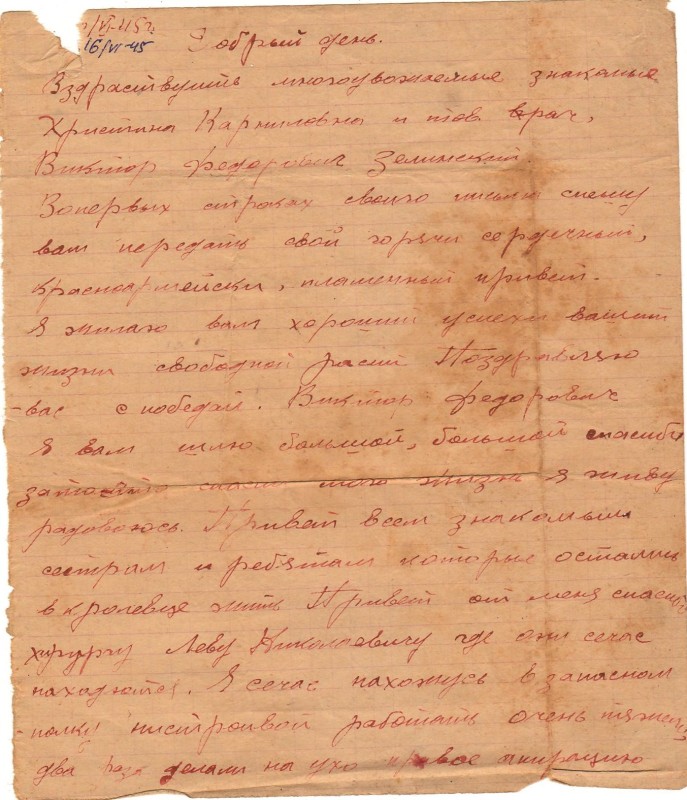 /VI-45г.
16/VI-45
Добрый день.
Вздраствуйть многоуважаемые знакомые
Христина Карниловна и тов врач,
Виктор Федорович Зелинский.
Вопервых строках своего письма спешу
вам передать свой горячи сердечный,
красноармейски, пламенный привет.
Я жилаю вам хороший успехи вашит
жизни свободной расии Поздравляю
вас с победай. Виктор Федорович
Я вам шлю большой, большой спасибо
затошто спасли мою жизнь я живу
радоваюсь. Привет всем знакомым
сестрам и ребятам которые остались
в кролевце жить Привет от меня спасибо
хирургу Леву Николаевичу где они сечас
находются. Я сечас нахожусь в запасном
полку нистроивой работать очень тяжело
два раза делали на ухо правое апирацию